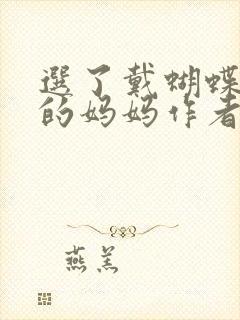 選了戴蝴蝶
的妈妈作者
燕羔